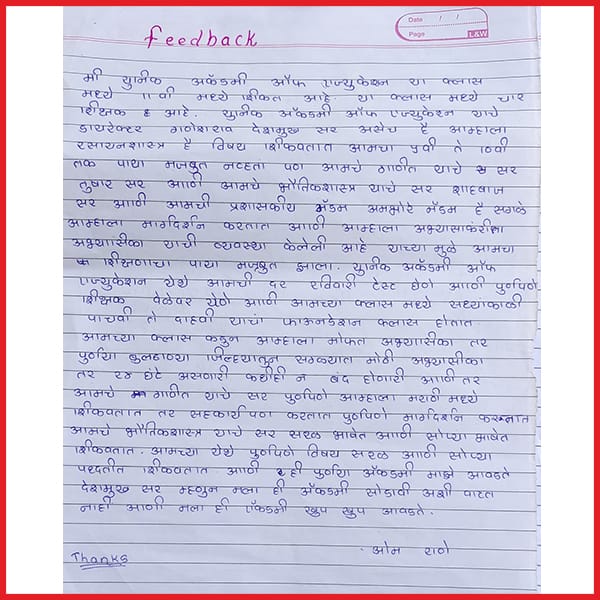 Date / /
Page
L&W
feedback
मी युनीक अकॅडमी ऑफ एज्युकेशन या क्लास
मध्ये 11वी मध्ये शिकत आहे. या क्लास मध्ये चार
शिक्षक आहे. युनीक अकॅडमी ऑफ एज्युकेशन याचे
डायरेक्टर गणेशराव देशमुख सर असेच हे आम्हाला
रसायनशास्त्र हे विषय शिकवतात आमचा ते 10वी
तक पाया मजबुत नव्हता पण आमचे गणीत याचे सर
तुषार सर आणी आमचे भौतिकशास्त्र याचे सर शाहबाज
सर आणी आमची प्रशासकीय मॅडम अमभोरे मॅडम हे सगळे
आम्हाला मार्गदर्शन करतात आणी आम्हाला अभ्यासाकरीता
अभ्यासीका याची व्यवस्था केलेली आहे याच्या मुळे आमचा
शिक्षणाचा पाया मजबुत झाला. युनीक अकॅडमी ऑफ
एज्युकेशन येथे आमची दर रविवारी टेस्ट घेणे आणी पुर्णपणे
शिक्षक वेळेवर येणे आणी आमच्या क्लास मध्ये सध्याकाळी
पाचवी ते दाहवी याचां फाऊनडेशन क्लास होतात
आमच्या क्लास कडुन आम्हाला मोफत अभ्यासीका तर
पुर्णया बुलढाण्या जिल्ह्यातुन सगळ्यात मोठी अभ्यासीका
तर २४ घंटे असणारी कधीही न बंद होणारी आणी तर
आमचे गणीत याचे सर पुर्णपणे आम्हाला मराठी मध्ये
शिकवतात तर सहकार्य पण करतात पुर्णपणे मार्गदर्शन करतात
आमचे भौतिकशास्त्र याचे सर सरळ भाषेत आणी सोप्या भाषेत
शिकवतात. आमच्या येथे पुर्णपणे विषय सरळ आणी सोप्या
पध्दतीत शिकवतात. आणी ही पुर्णया अकॅडमी माझे आवडते
देशमुख सर म्हणुन मला ही अकॅडमी सोडावी अशी वाटत
नाही आणी मला ही एकॅडमी खुप खुप आवडते.
Thanks